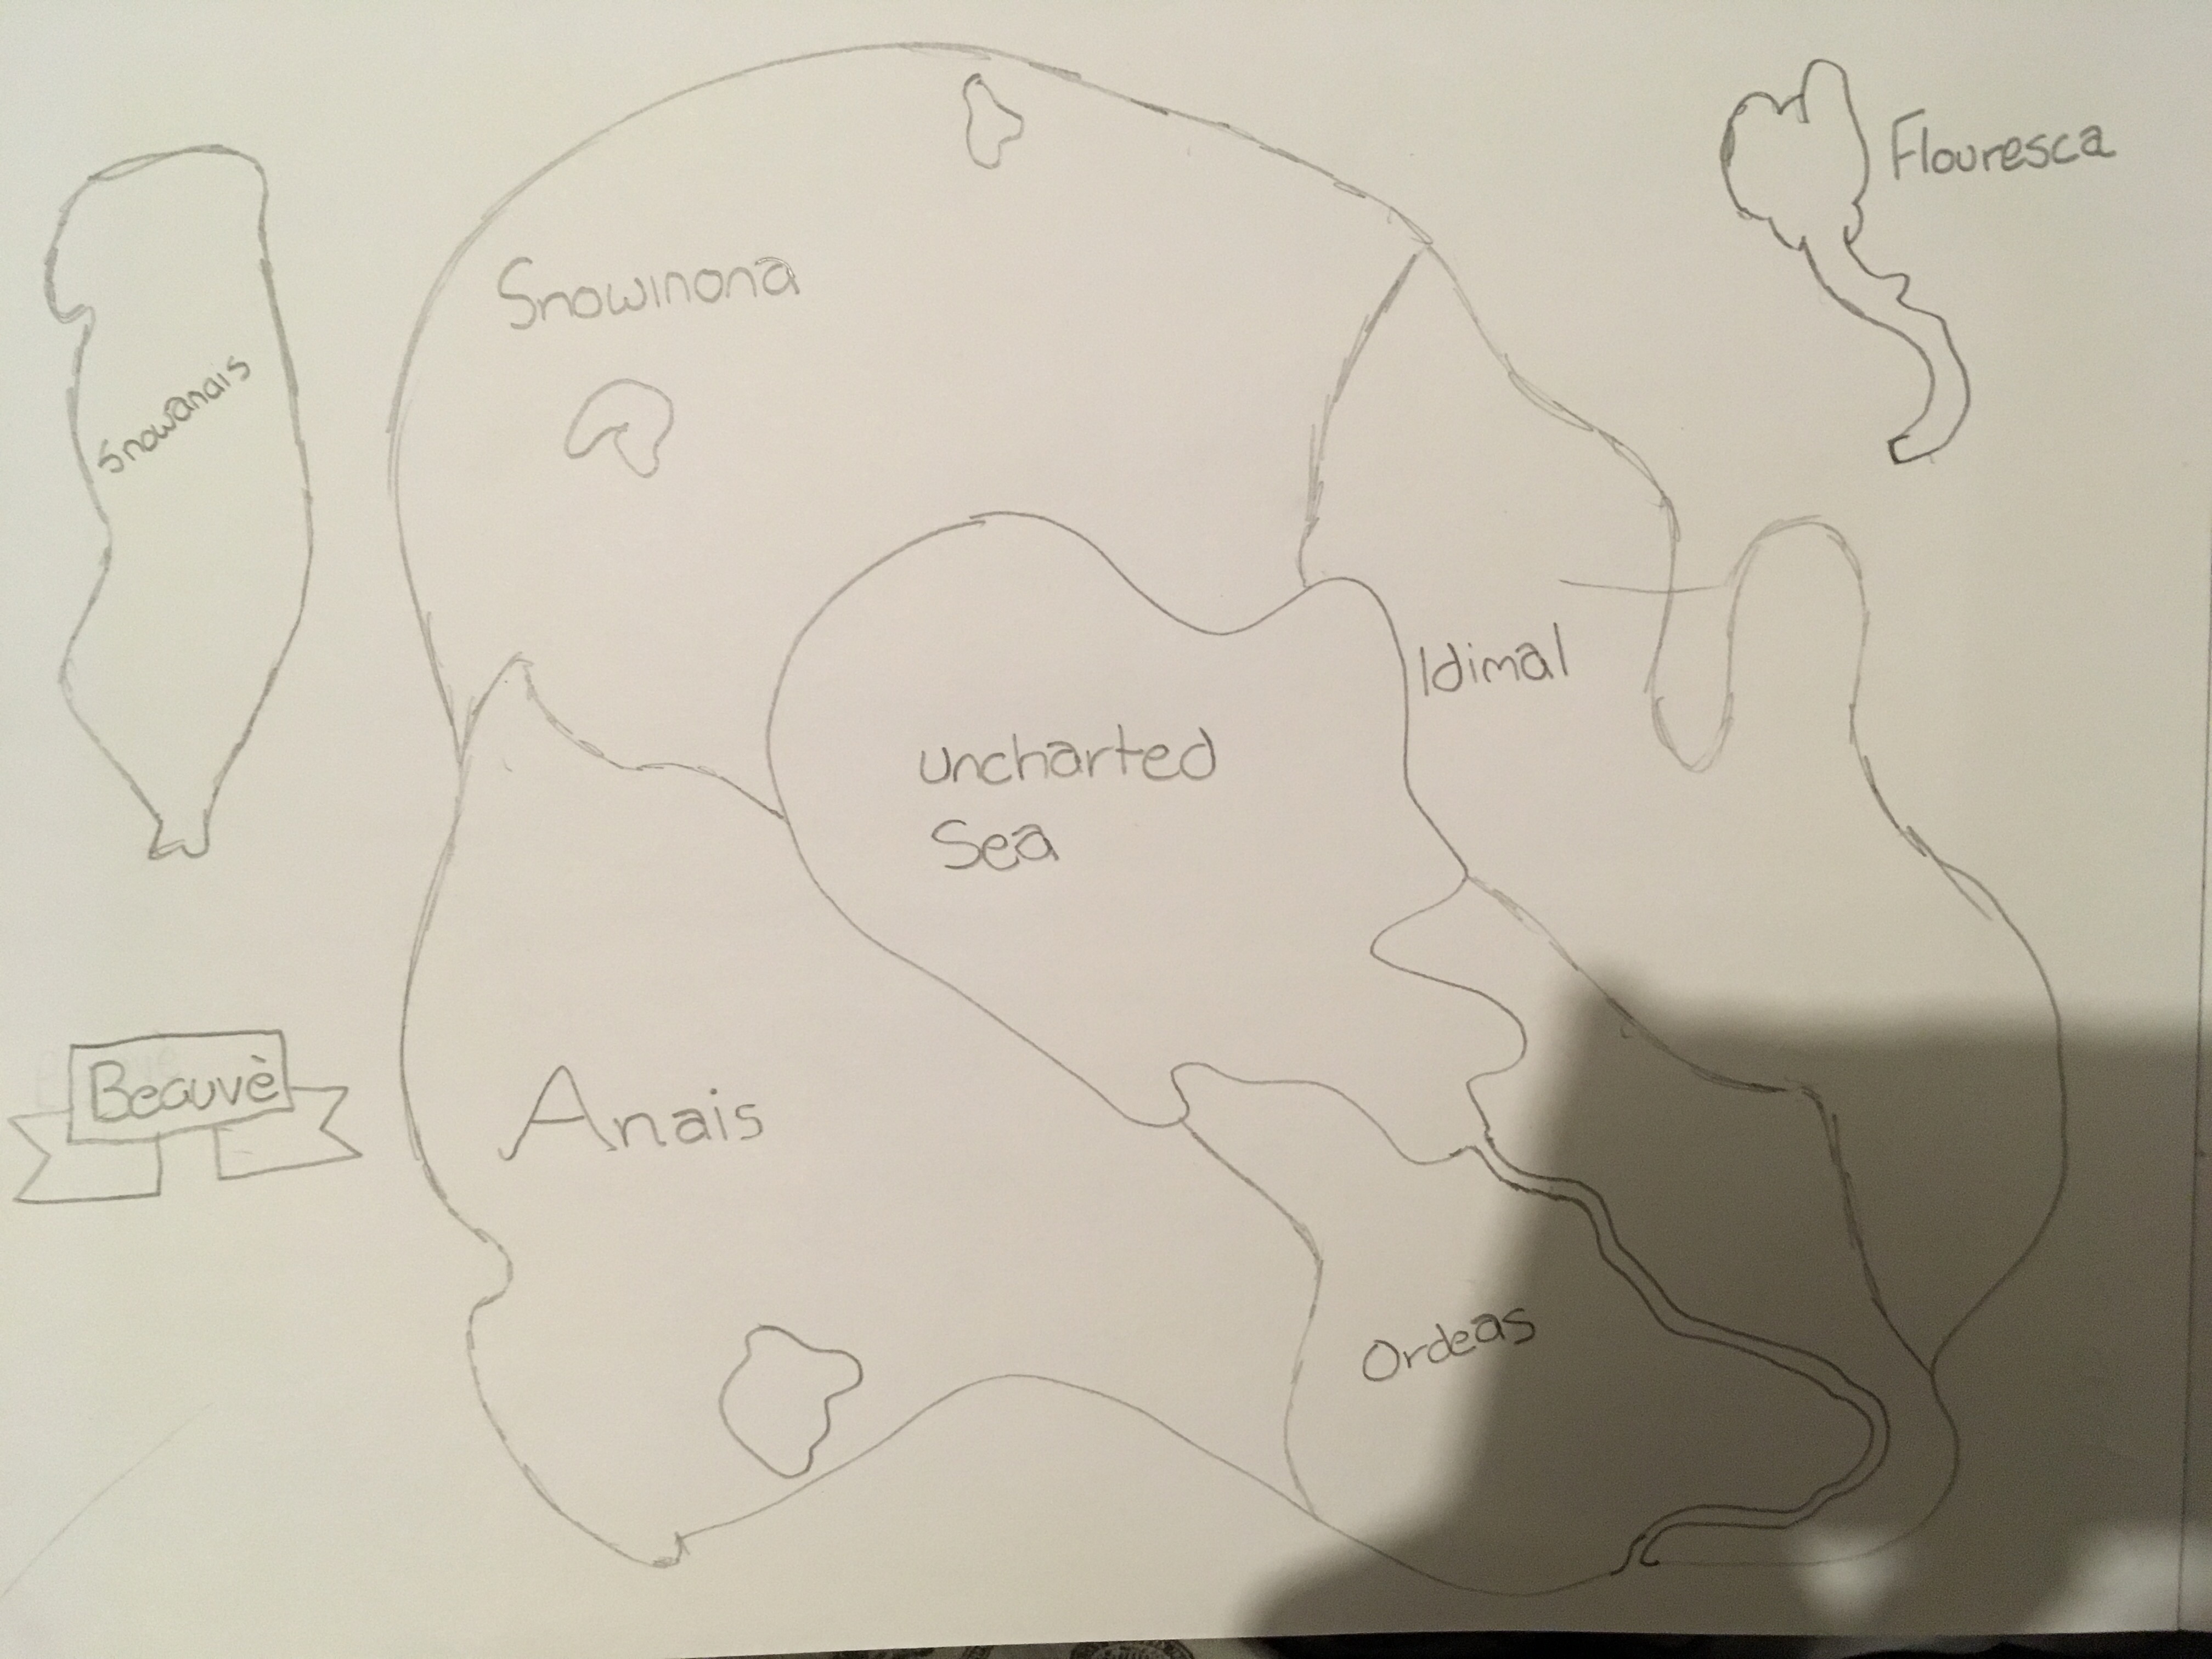 Flouresca
Snowinona
Snowanais
Idimal
uncharted
Sea
Beauvè
Anais
Ordeas